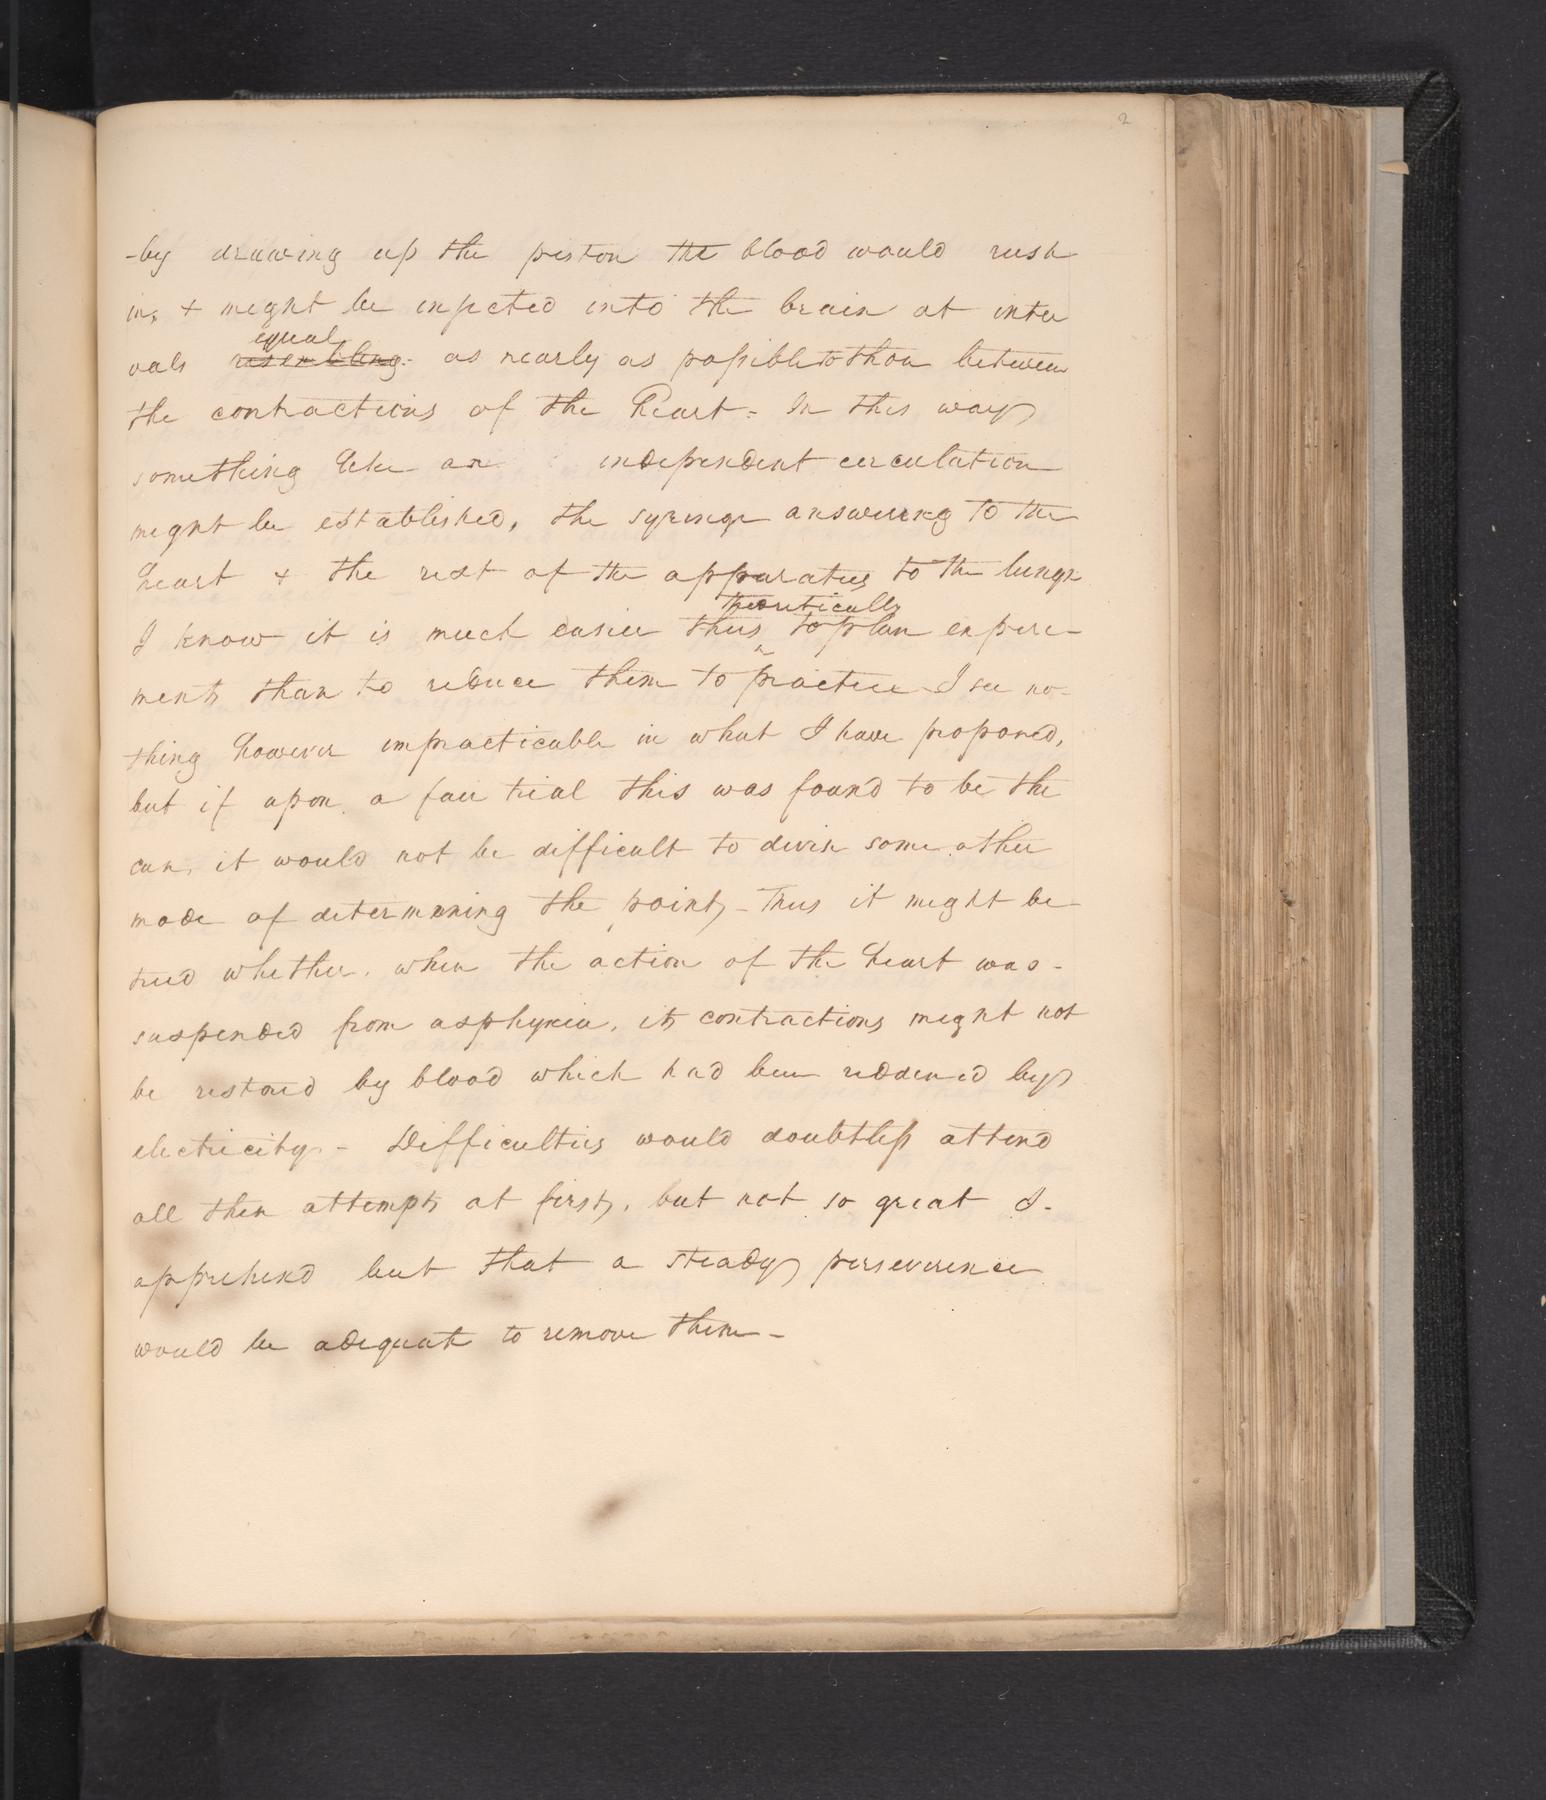 2
-by drawing up the piston the blood would rush
in, + might be injected into the brain at inter
equal
vals resembling- as nearly as possible to those between
the contractions of the Heart = In this way
something like an independent circulation
might be established, the syringe answering to the
heart + the rest of the apparatus to the lungs
theoritically
I know it is much easier thus ^ to plan experi-
ments than to reduce them to practice - I see no-
thing however impracticable in what I have proposed,
but if upon a fair trial this was found to be the
case, it would not be difficult to devise some other
mode of determining the point, - Thus it might be
tried whether, when the action of the heart was -
suspended from asphyxia, its contractions might not
be restored by blood which had been reddened by
electricity - Difficulties would doubtless attend
all these attempts at first, but not so great I -
apprehend but that a steady perseverence
would be adequate to remove them -